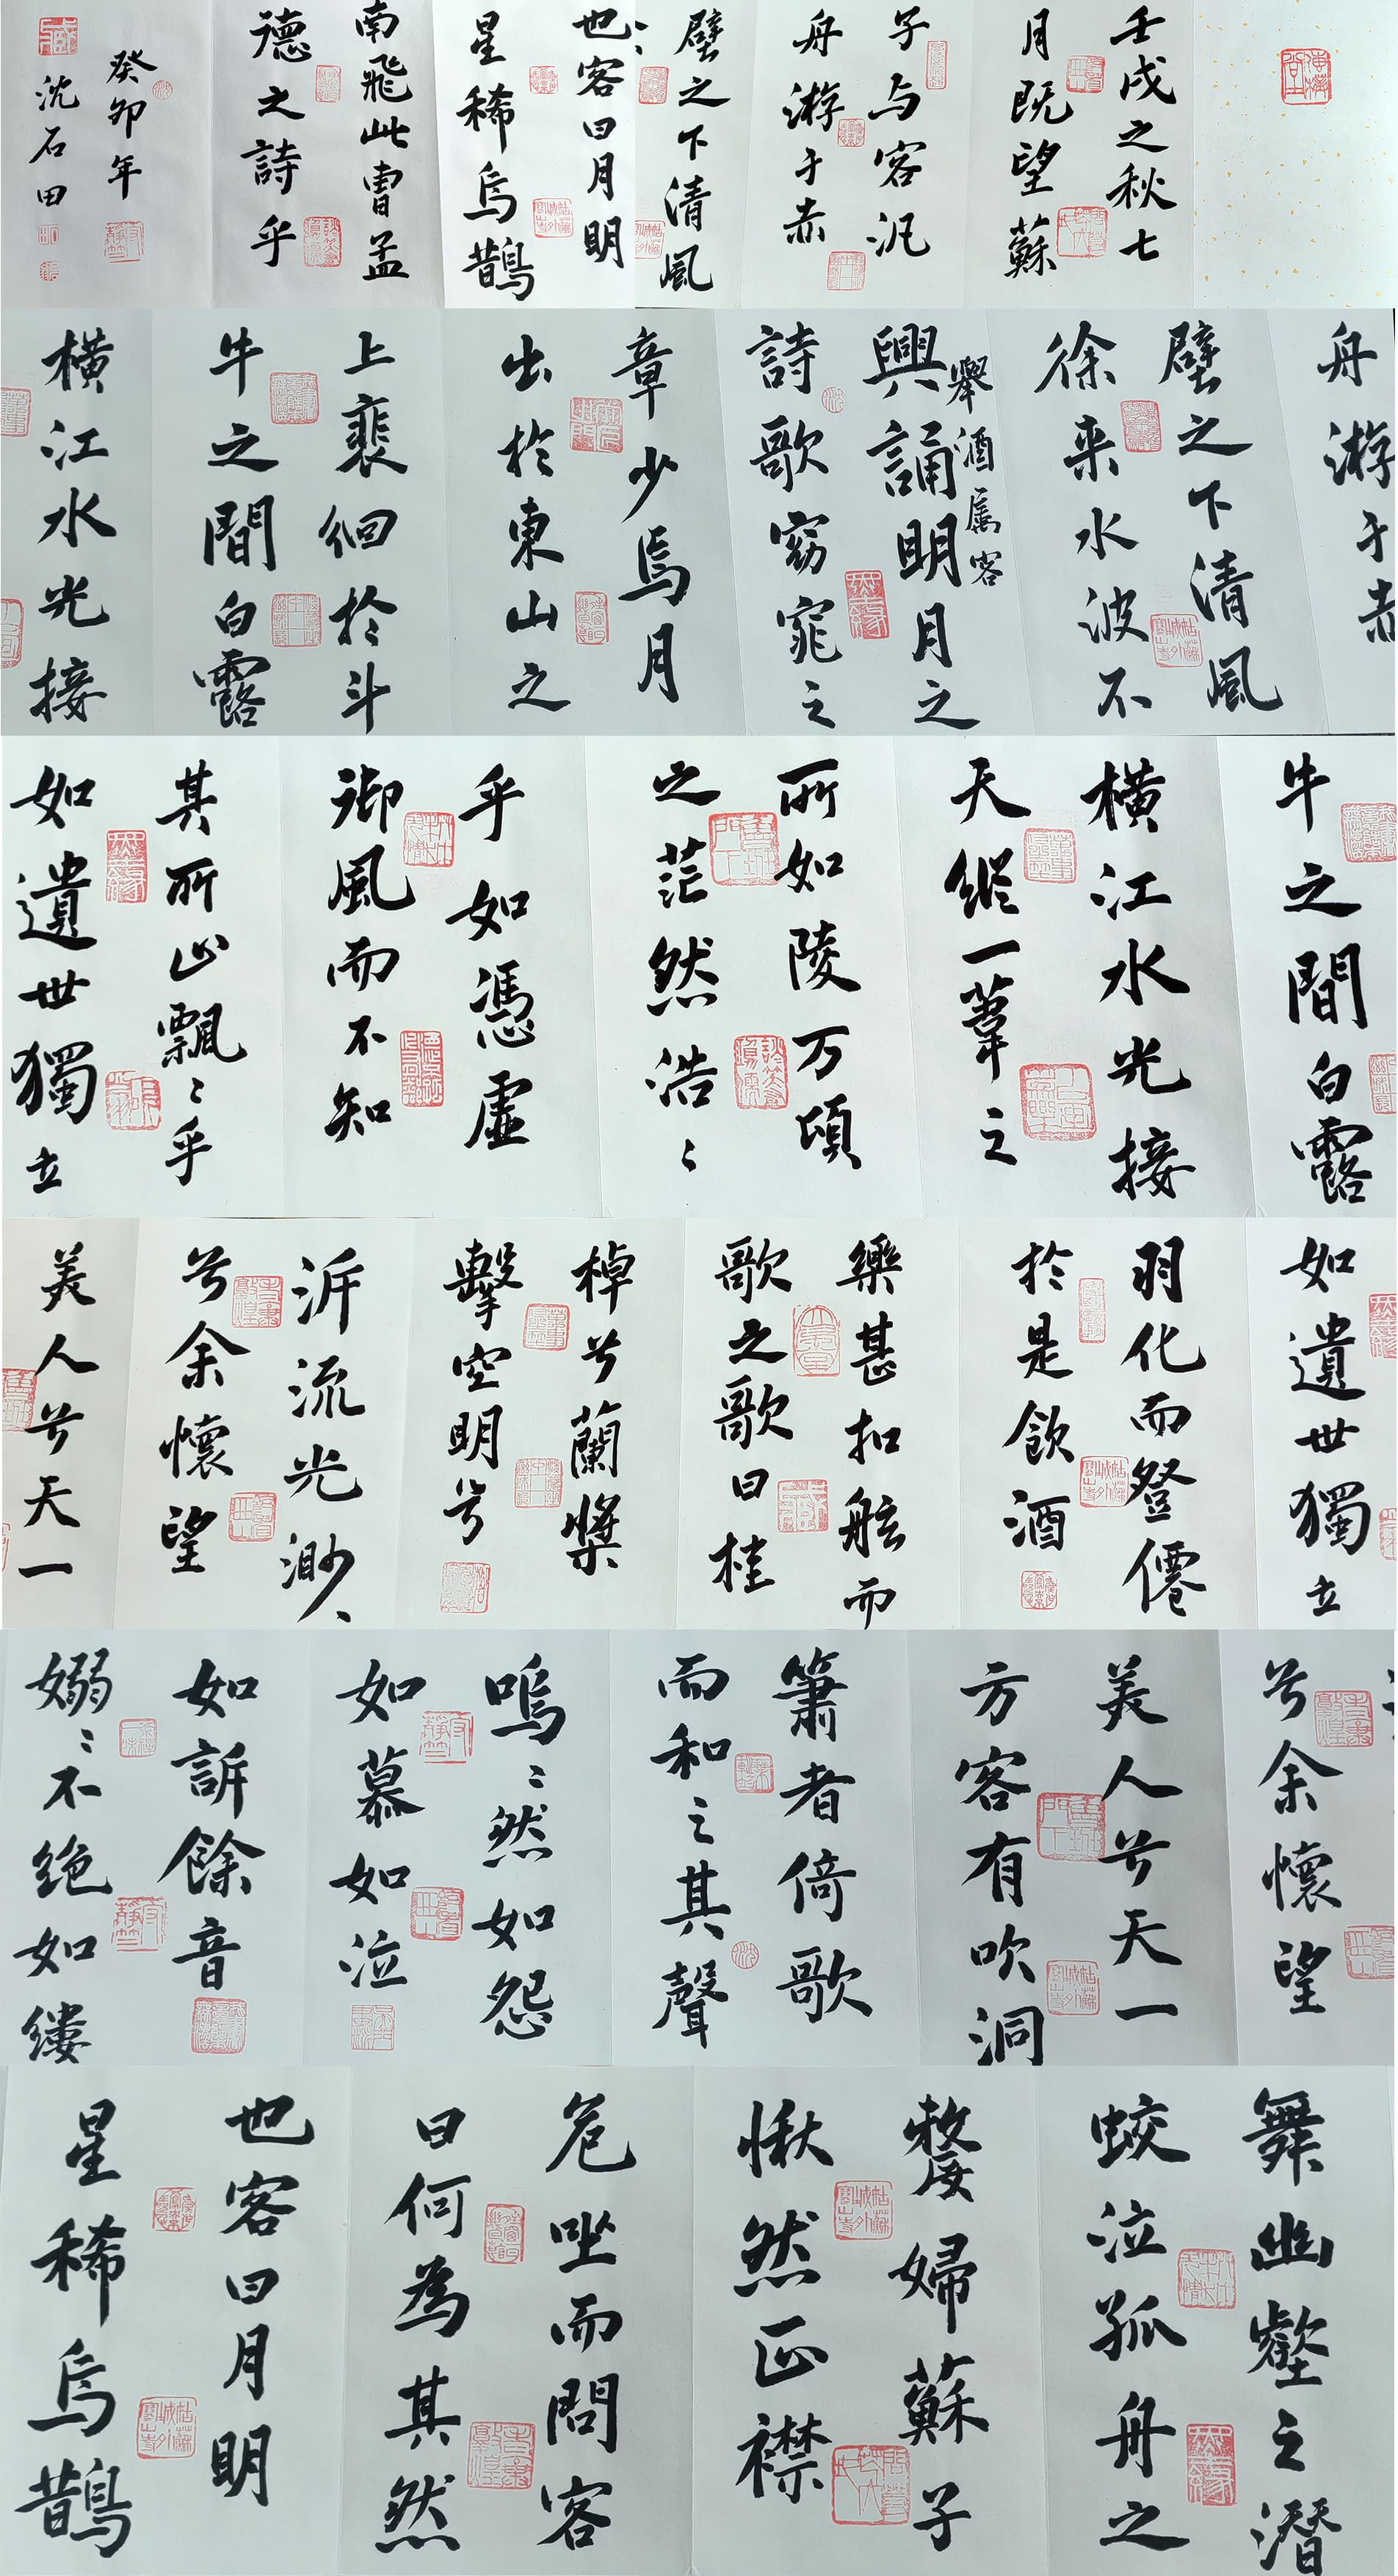 壬戌之秋七
月既望蘇
子与客汎
舟游于赤
壁之下清風
也客曰月明
星稀烏鵲
南飛此曹孟
德之詩乎
癸卯年
沈石田
舟游于赤
壁之下清風
徐来水波不
舉酒属客
興誦明月之
詩歌窈窕之
章少焉月
出於東山之
上裴徊於斗
牛之間白露
橫江水光接
牛之間白露
橫江水光接
天縱一葦之
所如陵万頃
之茫然浩〻
乎如憑虛
御風而不知
其所止飄〻乎
如遺世獨立
如遺世獨立
羽化而登僊
於是飲酒
樂甚扣舷而
歌之歌曰桂
棹兮蘭槳
擊空明兮
泝流光渺〻
兮余懷望
美人兮天一
兮余懷望
美人兮天一
方客有吹洞
簫者倚歌
而和之其聲
嗚〻然如怨
如慕如泣
如訴餘音
嫋〻不绝如縷
舞幽壑之潛
蛟泣孤舟之
嫠婦蘇子
愀然正襟
危坐而問客
曰何為其然
也客曰月明
星稀烏鵲